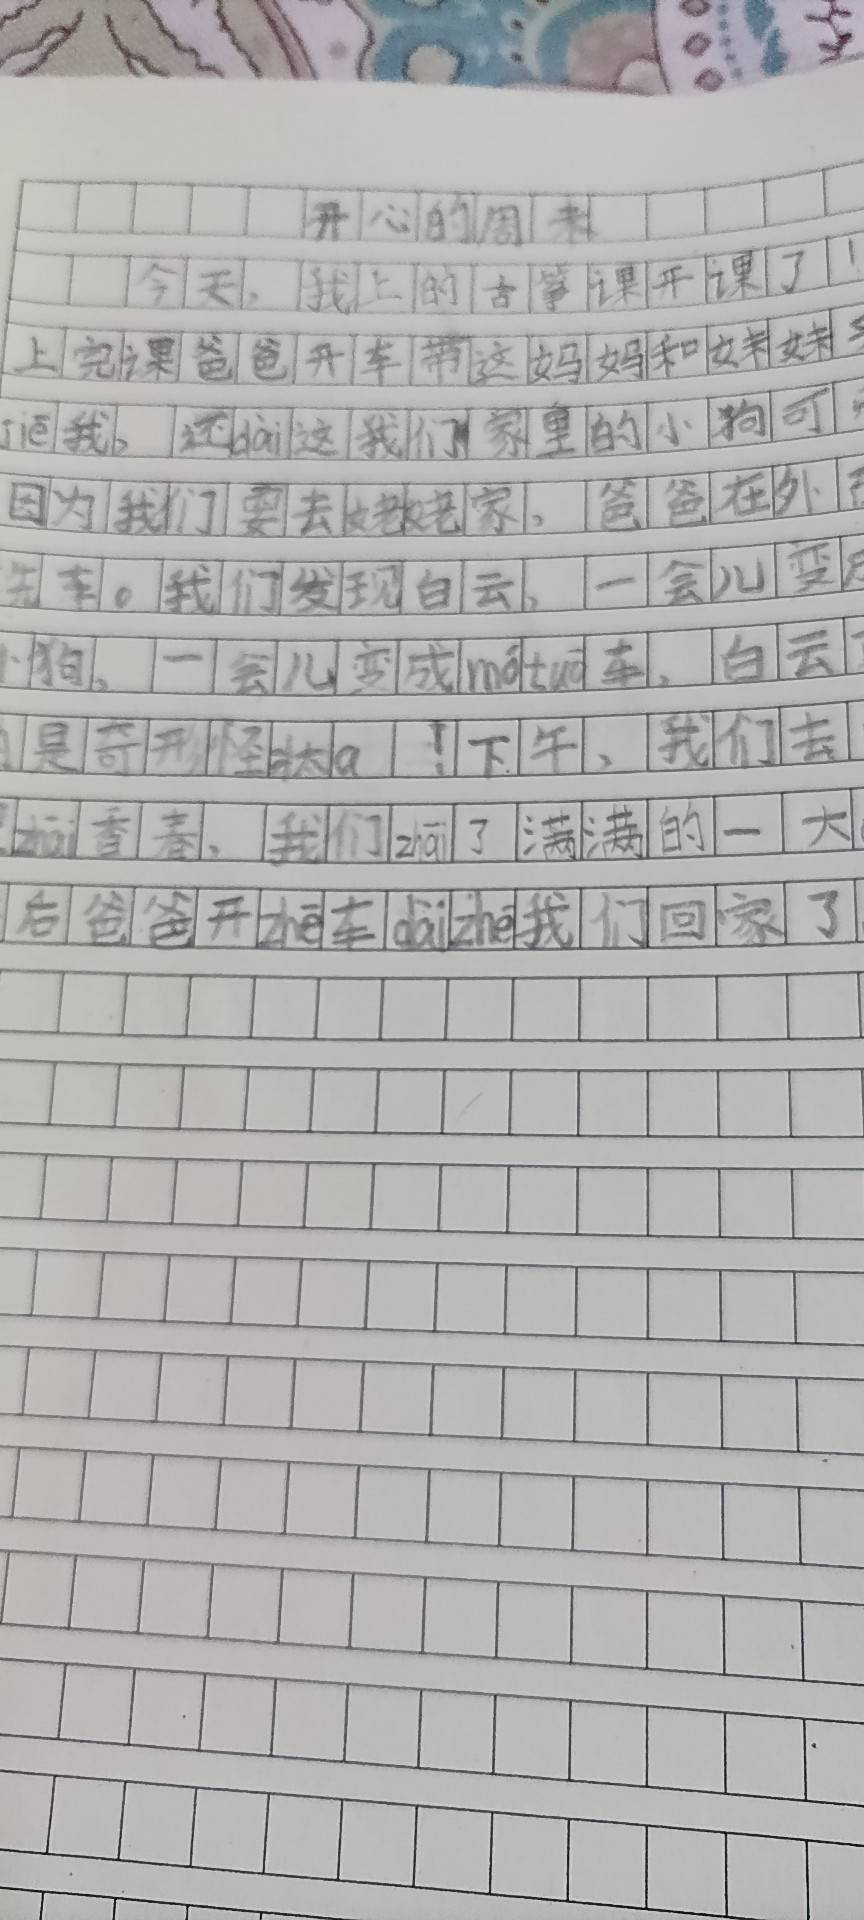 开心的周末
今天，我上的古筝课开课了！
上完课爸爸开车带这妈妈和妹妹
jiē我，还dài这我们家里的小狗可
因为我们要去姥姥家，爸爸在外
洗车。我们发现白云，一会儿变
小狗，一会儿变成mótuō车，白云
是奇形怪状a！下午，我们去
zhāi香春，我们zhāi了满满的一大
后爸爸开zhē车dàizhē我们回家了